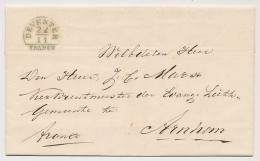 DEVENTER
24
11
FRANCO
Weledelen Heer
Den Heer J. C. Maest
der Evang. Luth.
Gemeente te
Franco Arnhem